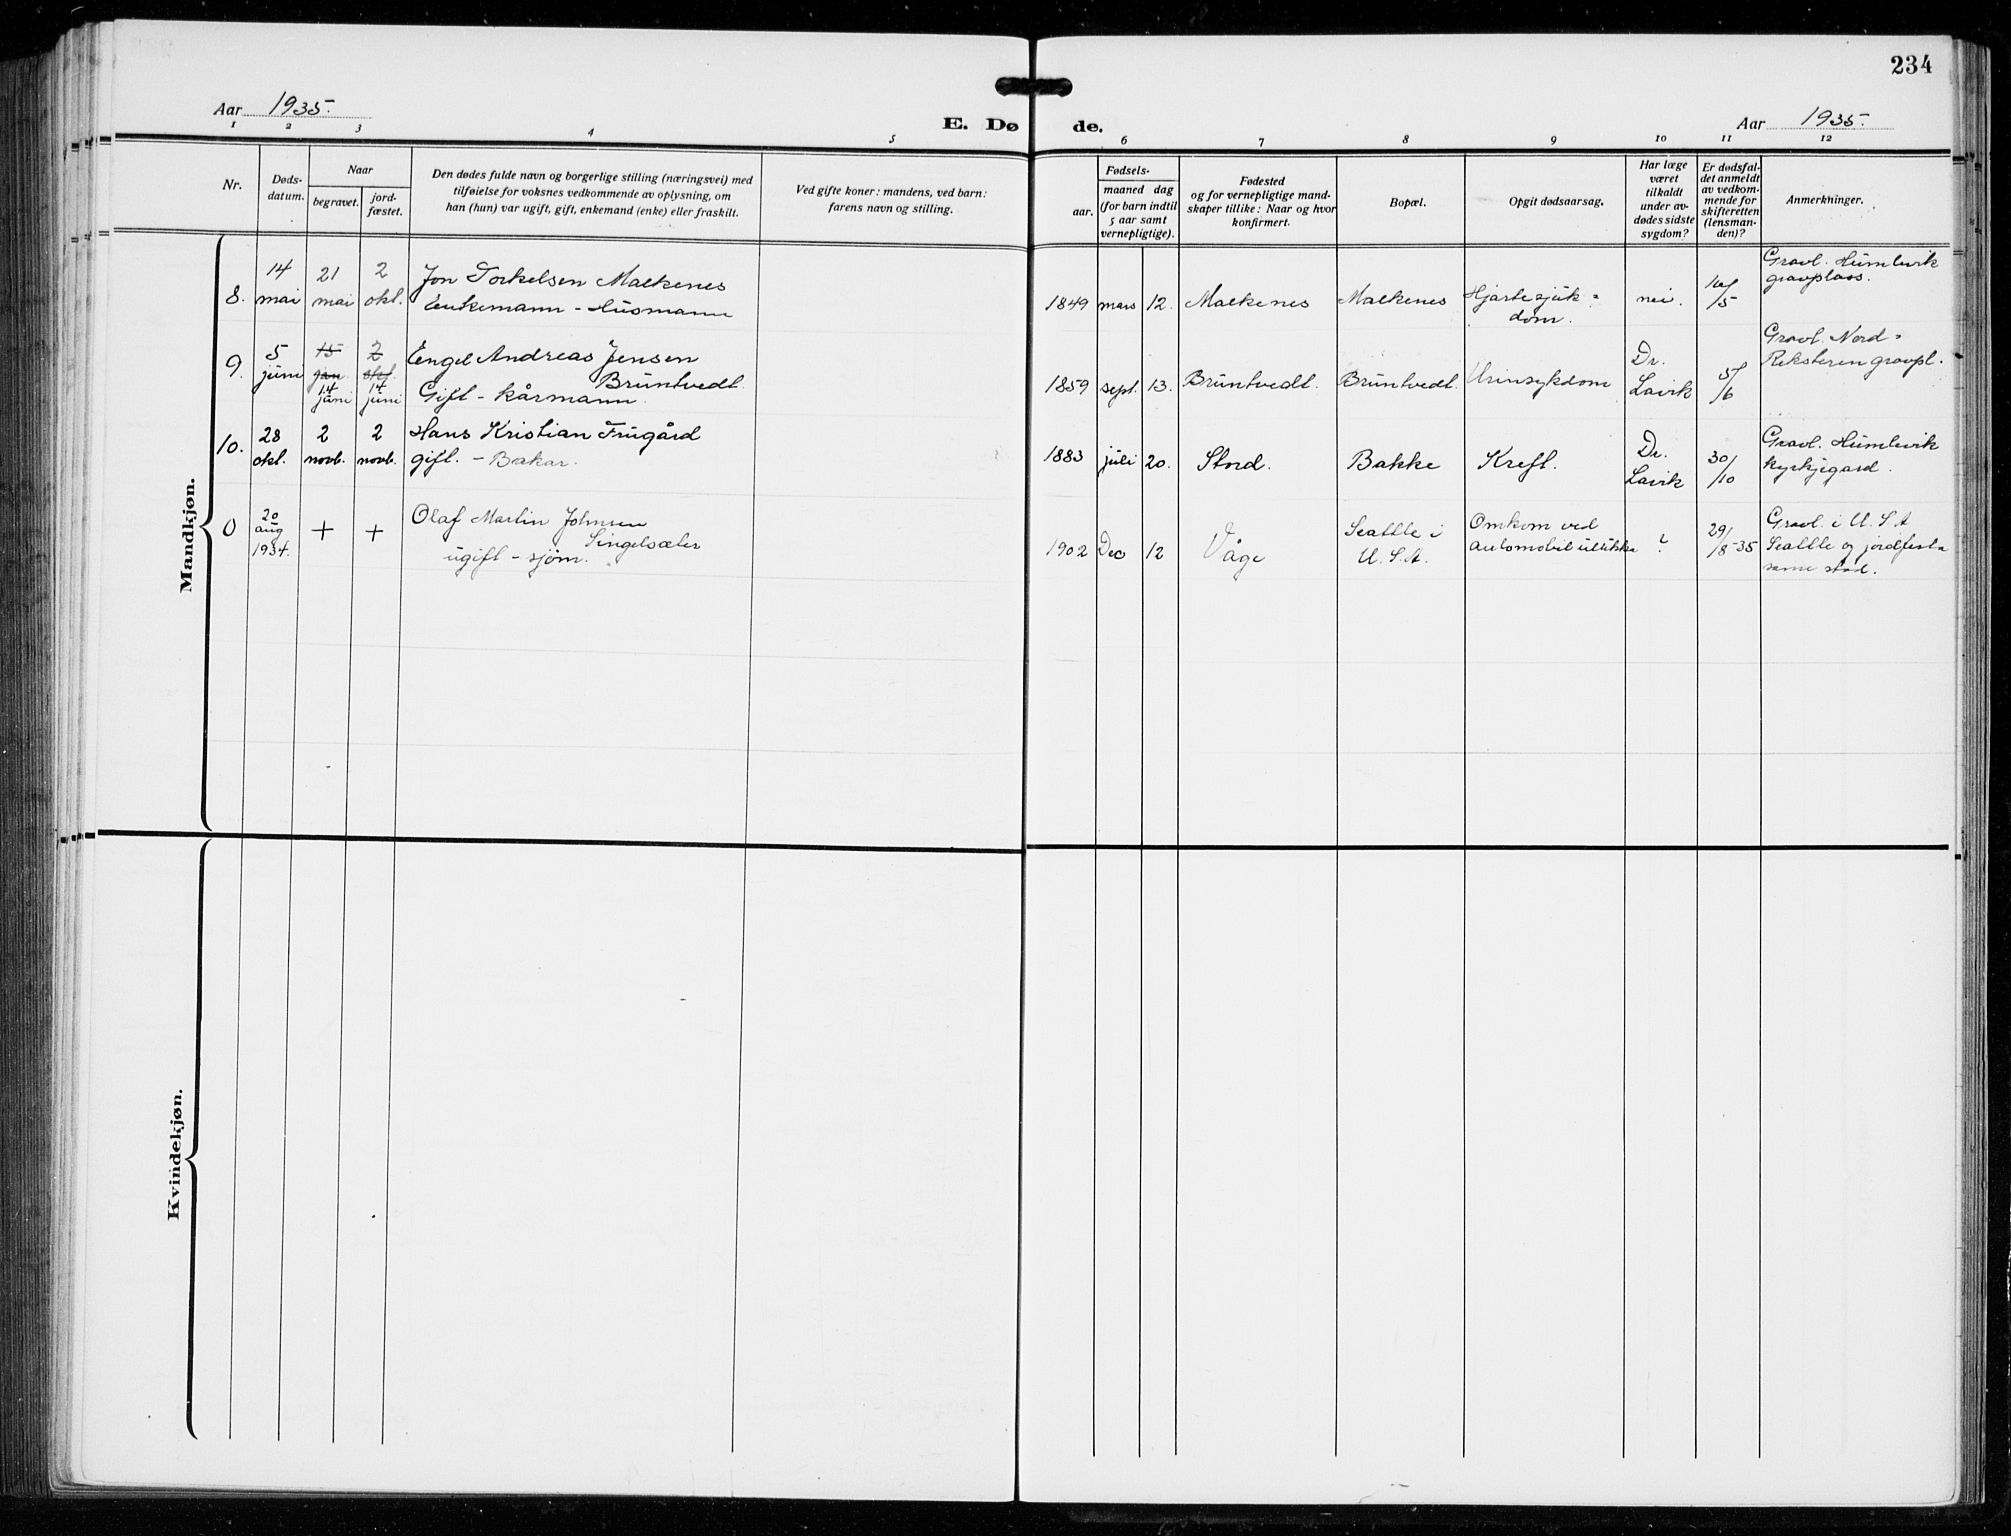 234
Aar 1935.
E. Dø
de.
Aar 1935.
1 2 3 4 5 6 7 8 9 10 11 12
Nr.
Døds-
datum.
Naar
begravet.
jord-
fæstet.
Den dødes fulde navn og borgerlige stilling (næringsvei) med
tilføielse for voksnes vedkommende av oplysning, om
han (hun) var ugift, gift, enkemand (enke) eller fraskilt.
Ved gifte koner: mandens, ved barn:
farens navn og stilling.
Fødsels-
aar.
maaned dag
(for barn indtil
5 aar samt
vernepligtige).
Fødested
og for vernepligtige mand-
skaper tillike: Naar og hvor
konfirmert.
Bopæl.
Opgit dødsaarsag.
Har læge
været
tilkaldt
under av-
dødes sidste
sygdom?
Er dødsfal-
det anmeldt
av vedkom-
mende for
skifteretten
(lensman-
den)?
Anmerkninger.
Mandkjøn.
8.
14
mai
21
mai
2
okt.
Jon Torkelsen Malkenes
Enkemann - Husmann
1849 mars 12.
Malkenes
Malkenes
Hjartesjuk=
dom.
nei.
/5
Gravl. Humlevik
gravplass.
9.
5
juni
15
jan
14
juni
2
okt.
14
juni
Engel Andreas Jensen
Bruntvedt.
Gift - kårmann.
1859 sept. 13.
Bruntvedt.
Bruntvedt.
Urinsykdom
Dr.
Lavik
5/
/6
Gravl. Nord=
Reksteren gravpl.
10.
28
okt.
2
novb.
2
novb.
Hans Kristian Frugård
gift. - Bakar.
1883 juli 20.
Stord.
Bakke
Kreft.
Dr.
Lavik
30/
/10
Gravl. Humlevik
kyrkjegard.
0
20
aug
1934.
+
+
Olaf Martin Johnsen
Singelsæter
ugift - sjøm.
1902 Dec 12
Våge
Seattle i
U.S.A.
Omkom ved
automobilulukke
?
29/
/8-35
Gravl. i U.S.A
Seattle og jordfest
same stad.
Kvindekjøn.